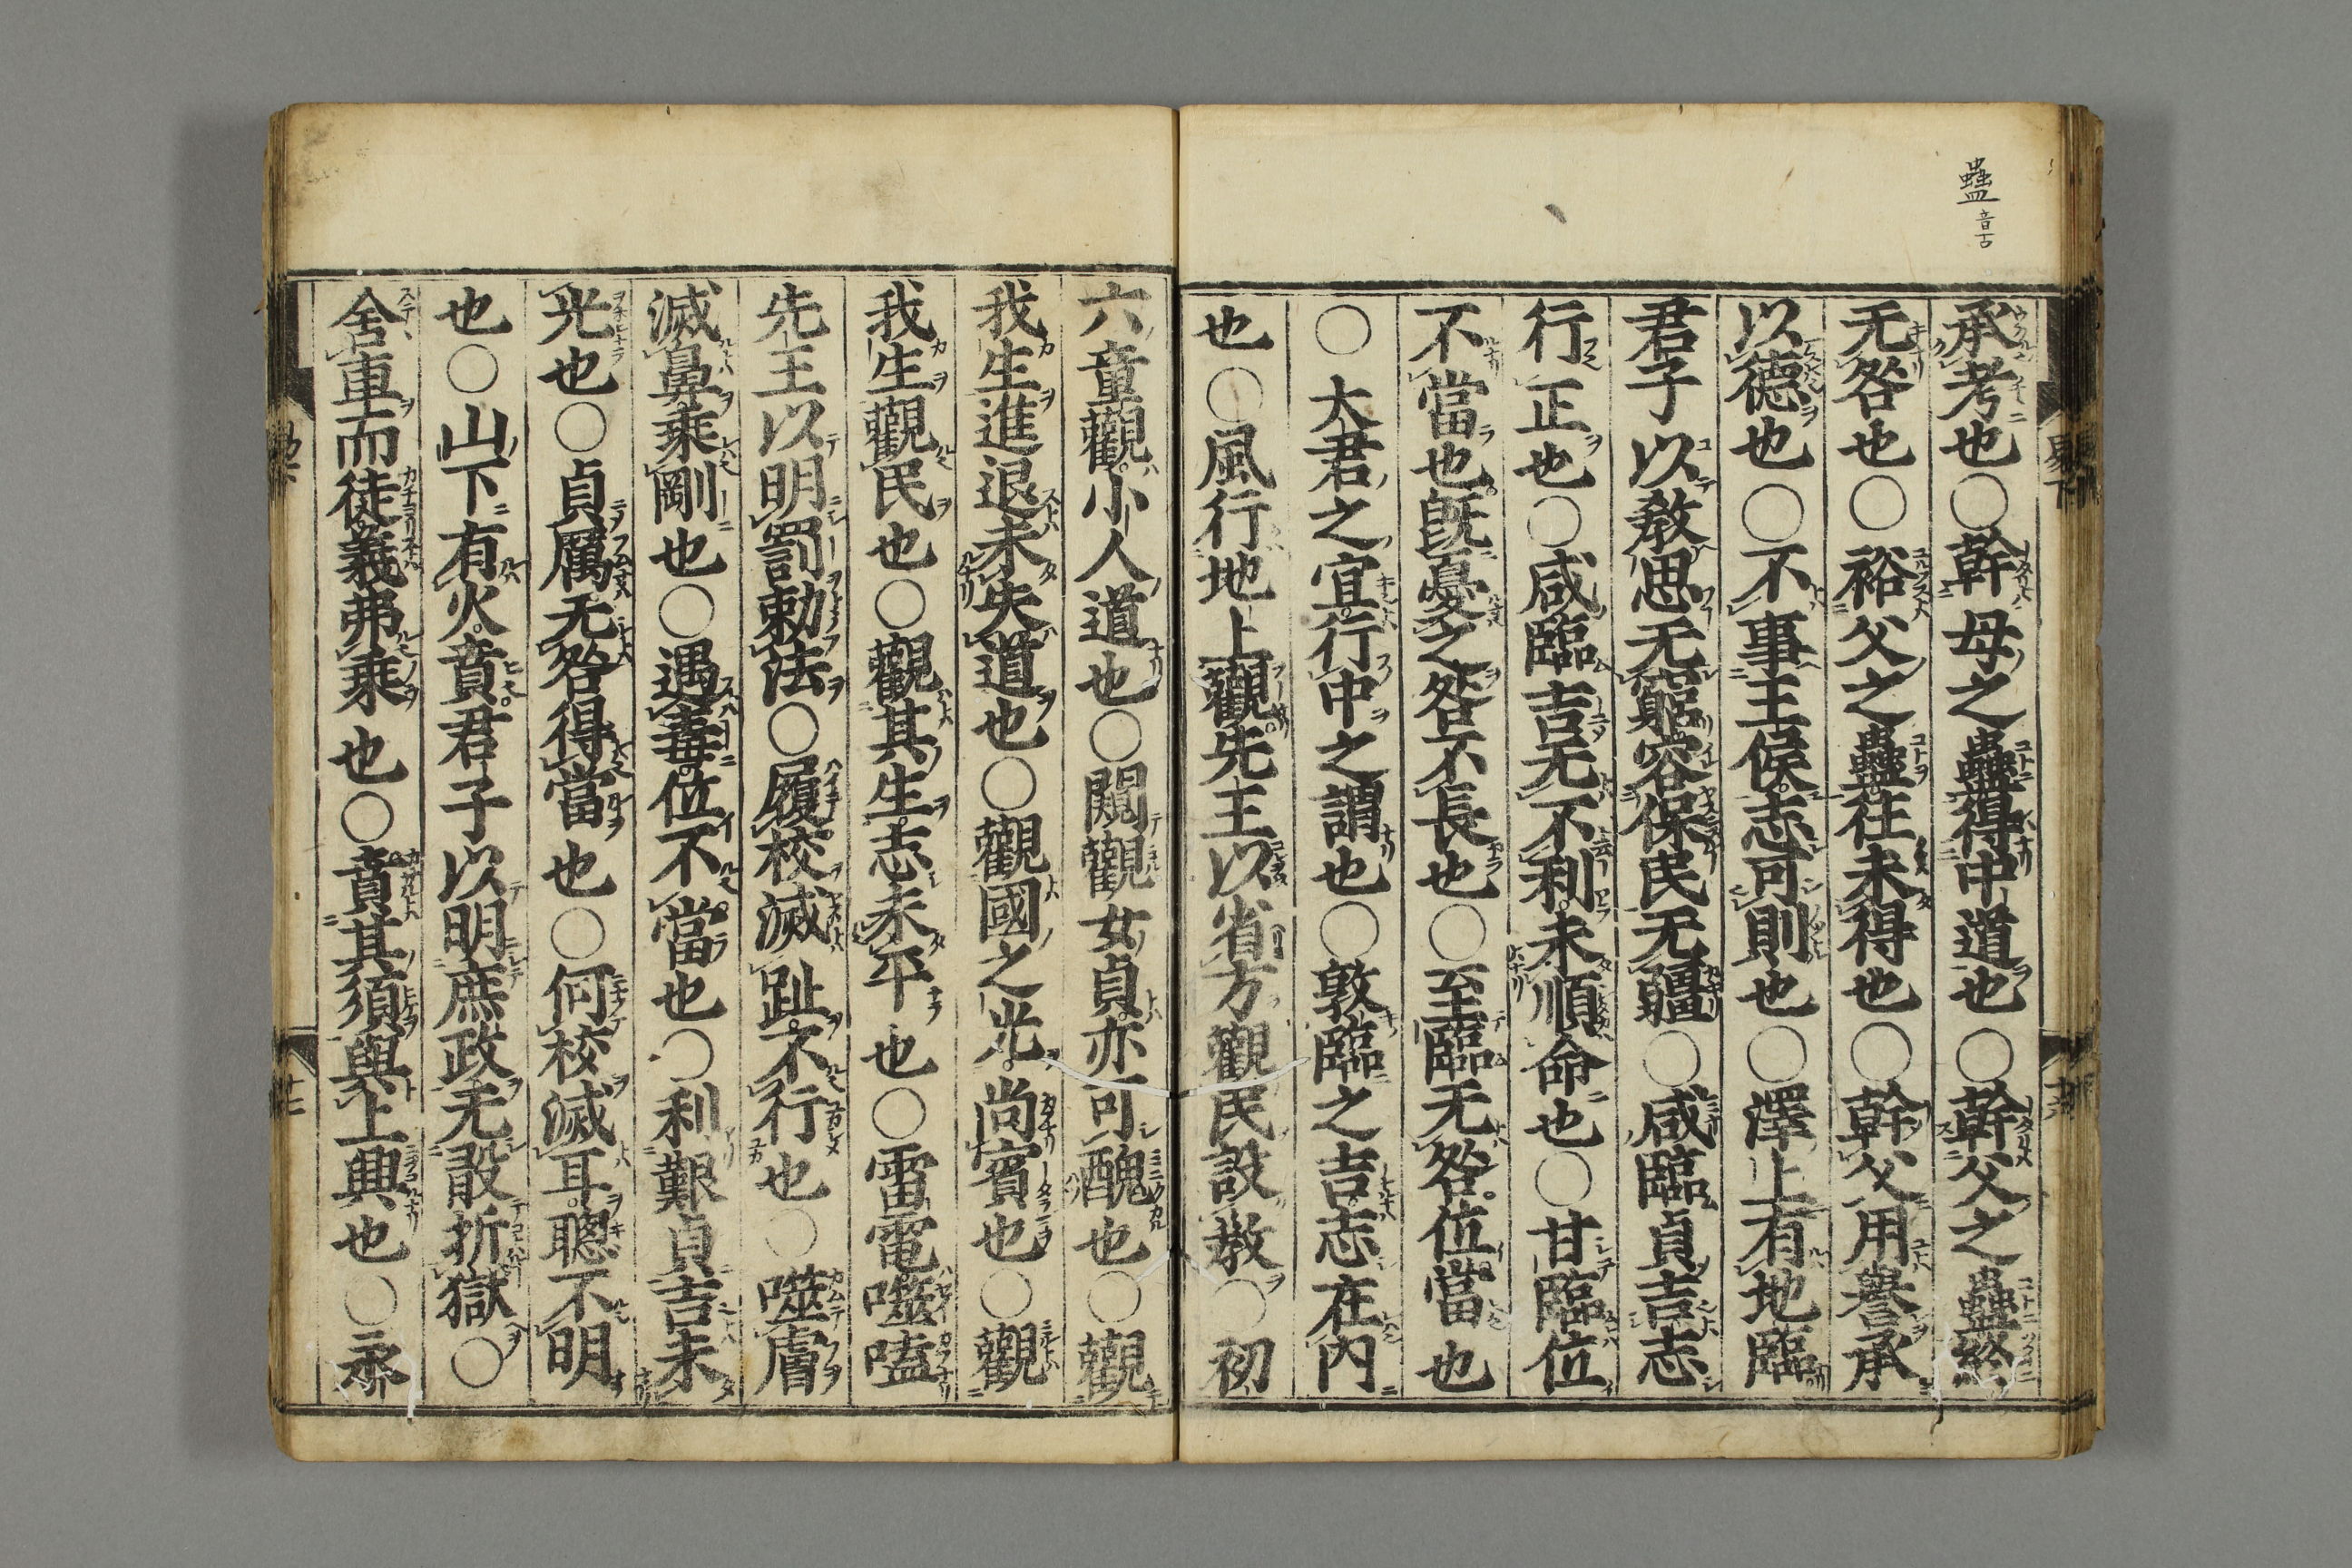 蠱 音古
承考也○幹母之蠱得中道也○幹父之蠱終
无咎也○裕父之蠱往未得也○幹父用譽承
以德也○不事王侯志可則也○澤上有地臨
君子以教思无窮容保民无疆○咸臨貞吉志
行正也○咸臨吉无不利未順命也○甘臨位
不當也既憂之咎不長也○至臨无咎位當也
○大君之宜行中之謂也○敦臨之吉志在內
也○風行地上觀先王以省方觀民設教○初
六童觀小人道也○闚觀女貞亦可醜也○觀
我生進退未失道也○觀國之光尚賓也○觀
我生觀民也○觀其生志未平也○雷電噬嗑
先王以明罰勅法○履校滅趾不行也○噬膚
滅鼻乘剛也○遇毒位不當也○利艱貞吉未
光也○貞厲无咎得當也○何校滅耳聰不明
也○山下有火賁君子以明庶政无敢折獄○
舍車而徒義弗乘也○賁其須與上興也○永